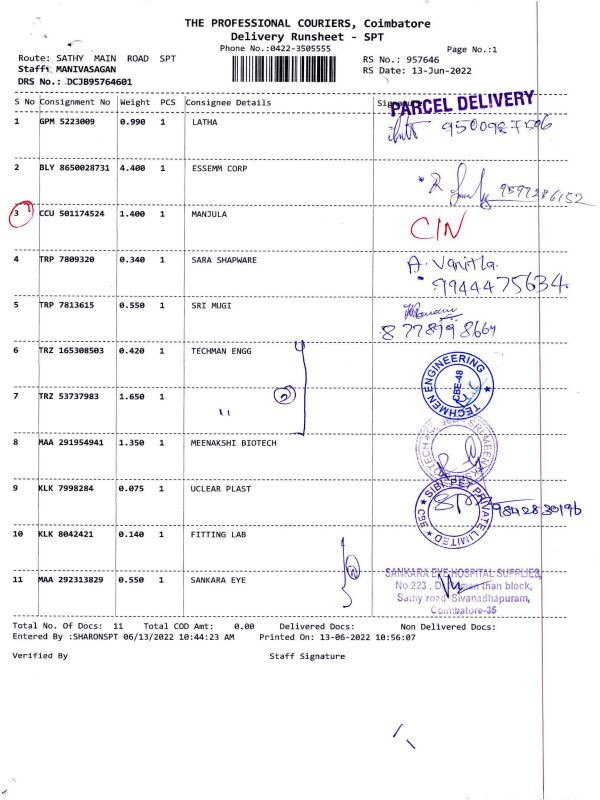 THE PROFESSIONAL COURIERS, Coimbatore
Delivery Runsheet - SPT
Phone No.:0422-3505555
Page No.:1
Route: SATHY MAIN ROAD SPT
RS No.: 957646
Staff: MANIVASAGAN
RS Date: 13-Jun-2022
DRS No.: DCJB95764601
S No Consignment No Weight PCS Consignee Details Signature
PARCEL DELIVERY
1 GPM 5223009 0.990 1 LATHA
2 BLY 8650028731 4.400 1 ESSEMM CORP
9597286152
3 CCU 501174524 1.400 1 MANJULA
CIN
4 TRP 7809320 0.340 1 SARA SHAPWARE
A. Vanitha
9944475634
5 TRP 7813615 0.550 1 SRI MUGI
8778998664
6 TRZ 165308503 0.420 1 TECHMAN ENGG
TECHMEN ENGINEERING
CBE-48
7 TRZ 53737983 1.650 1 "
2
8 MAA 291954941 1.350 1 MEENAKSHI BIOTECH
9 KLK 7998284 0.075 1 UCLEAR PLAST
SIBI PET PRIVATE LIMITED
CBE
9842830196
10 KLK 8042421 0.140 1 FITTING LAB
2
11 MAA 292313829 0.550 1 SANKARA EYE
SANKARA EYE HOSPITAL SUPPLIES,
No 223, block,
Sathy road, Sivanadhapuram,
Coimbatore-35
Total No. Of Docs: 11 Total COD Amt: 0.00 Delivered Docs: Non Delivered Docs:
Entered By :SHARONSPT 06/13/2022 10:44:23 AM Printed On: 13-06-2022 10:56:07
Verified By Staff Signature